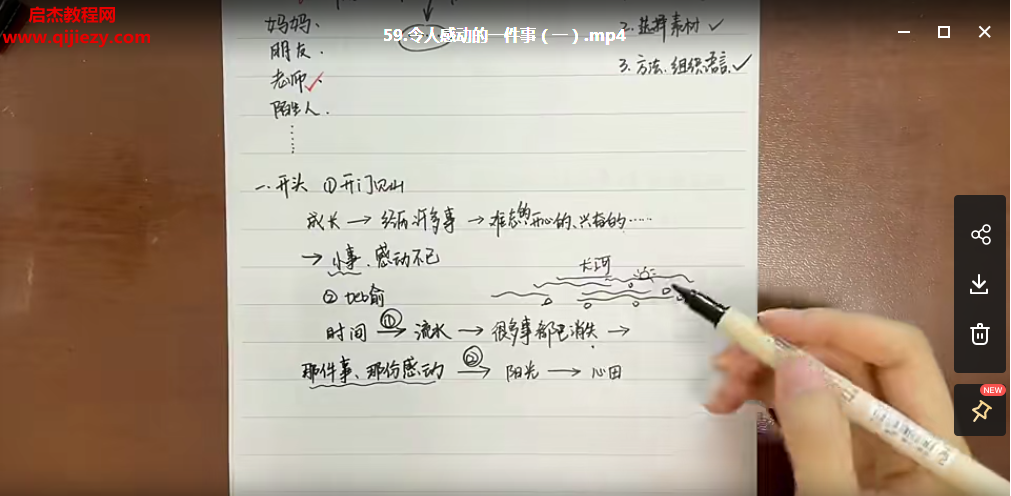 启杰教程网
www.qijiezy.com
59.令人感动的一件事（一）.mp4
妈妈.
朋友.
老师✓.
陌生人.
……
2.选择素材✓
3.方法.组织语言✓
一.开头 ①开门见山
成长→经历许多事→难忘的、开心的、兴奋的……
→小事、感动不已
②比喻
长河
时间 ① → 流水 → 很多事都已消失 →
那件事、那份感动 ② → 阳光 → 心田
NEW